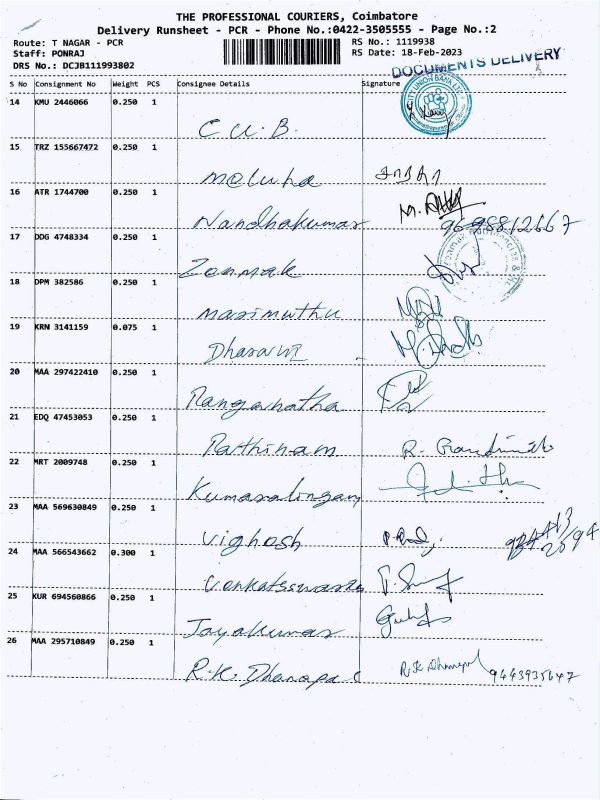 THE PROFESSIONAL COURIERS, Coimbatore
Delivery Runsheet - PCR - Phone No.:0422-3505555 - Page No.:2
Route: T NAGAR - PCR
RS No.: 1119938
Staff: PONRAJ
RS Date: 18-Feb-2023
DRS No.: DCJB111993802
DOCUMENTS DELIVERY
S No Consignment No Weight PCS Consignee Details Signature
14 KMU 2446066 0.250 1
CITY UNION BANK LTD
C U. B.
15 TRZ 155667472 0.250 1
Meluha
16 ATR 1744700 0.250 1
Nandhakumar
17 DDG 4748334 0.250 1
Zenmak
18 DPM 382586 0.250 1
Marimuthu
19 KRN 3141159 0.075 1
Dharani
20 MAA 297422410 0.250 1
Ranganatha
21 EDQ 47453053 0.250 1
Rathinam
22 MRT 2009748 0.250 1
Kumaralingam
23 MAA 569630849 0.250 1
Vighosh
24 MAA 566543662 0.300 1
Venkateswara
25 KUR 694560866 0.250 1
Jayakumar
26 MAA 295710849 0.250 1
R.K. Dhanapal R.K. Dhanapal 9443935647